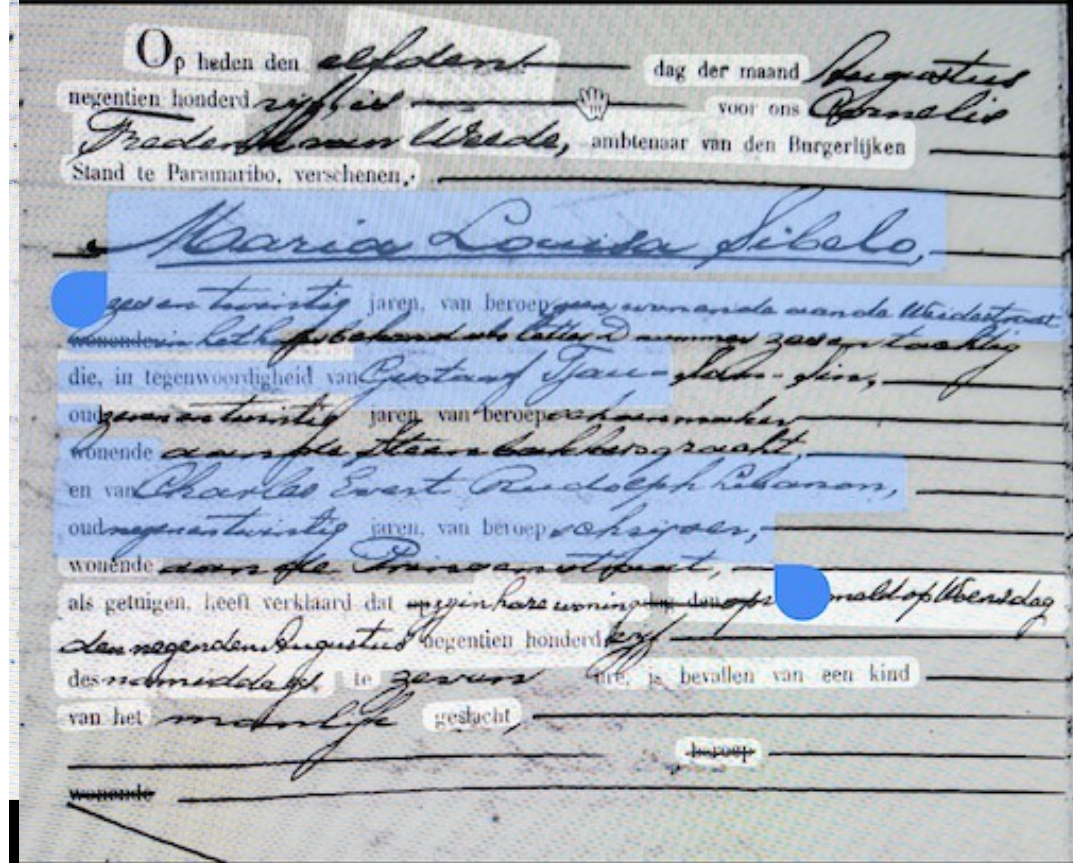 Op heden den elfden dag der maand Augustus
negentien honderd vijf is voor ons Cornelis
Frederik van Weede, ambtenaar van den Burgerlijken
Stand te Paramaribo, verschenen,
Maria Louisa Sibelo,
zes en twintig jaren, van beroep geen, wonende aan de Weidestraat
wonende in het huis bekend als letter D nummer zeven tachtig
die, in tegenwoordigheid van Gustaaf Tjau-Sam-Sin,
oud zeven en twintig jaren, van beroep schoenmaker
wonende aan de Steenbakkersgracht,
en van Charles Evert Rudolph Libanon,
oud negen en twintig jaren, van beroep schrijver,
wonende aan de Prinsenstraat,
als getuigen, heeft verklaard dat zij in hare woning op Woensdag
den negenden Augustus negentien honderd vijf
des namiddags te zeven ure, is bevallen van een kind
van het manlijk geslacht,
beroep
wonende